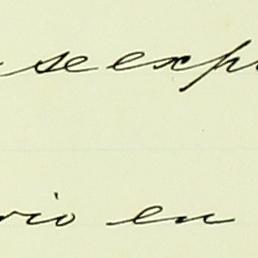 se exp
rio en